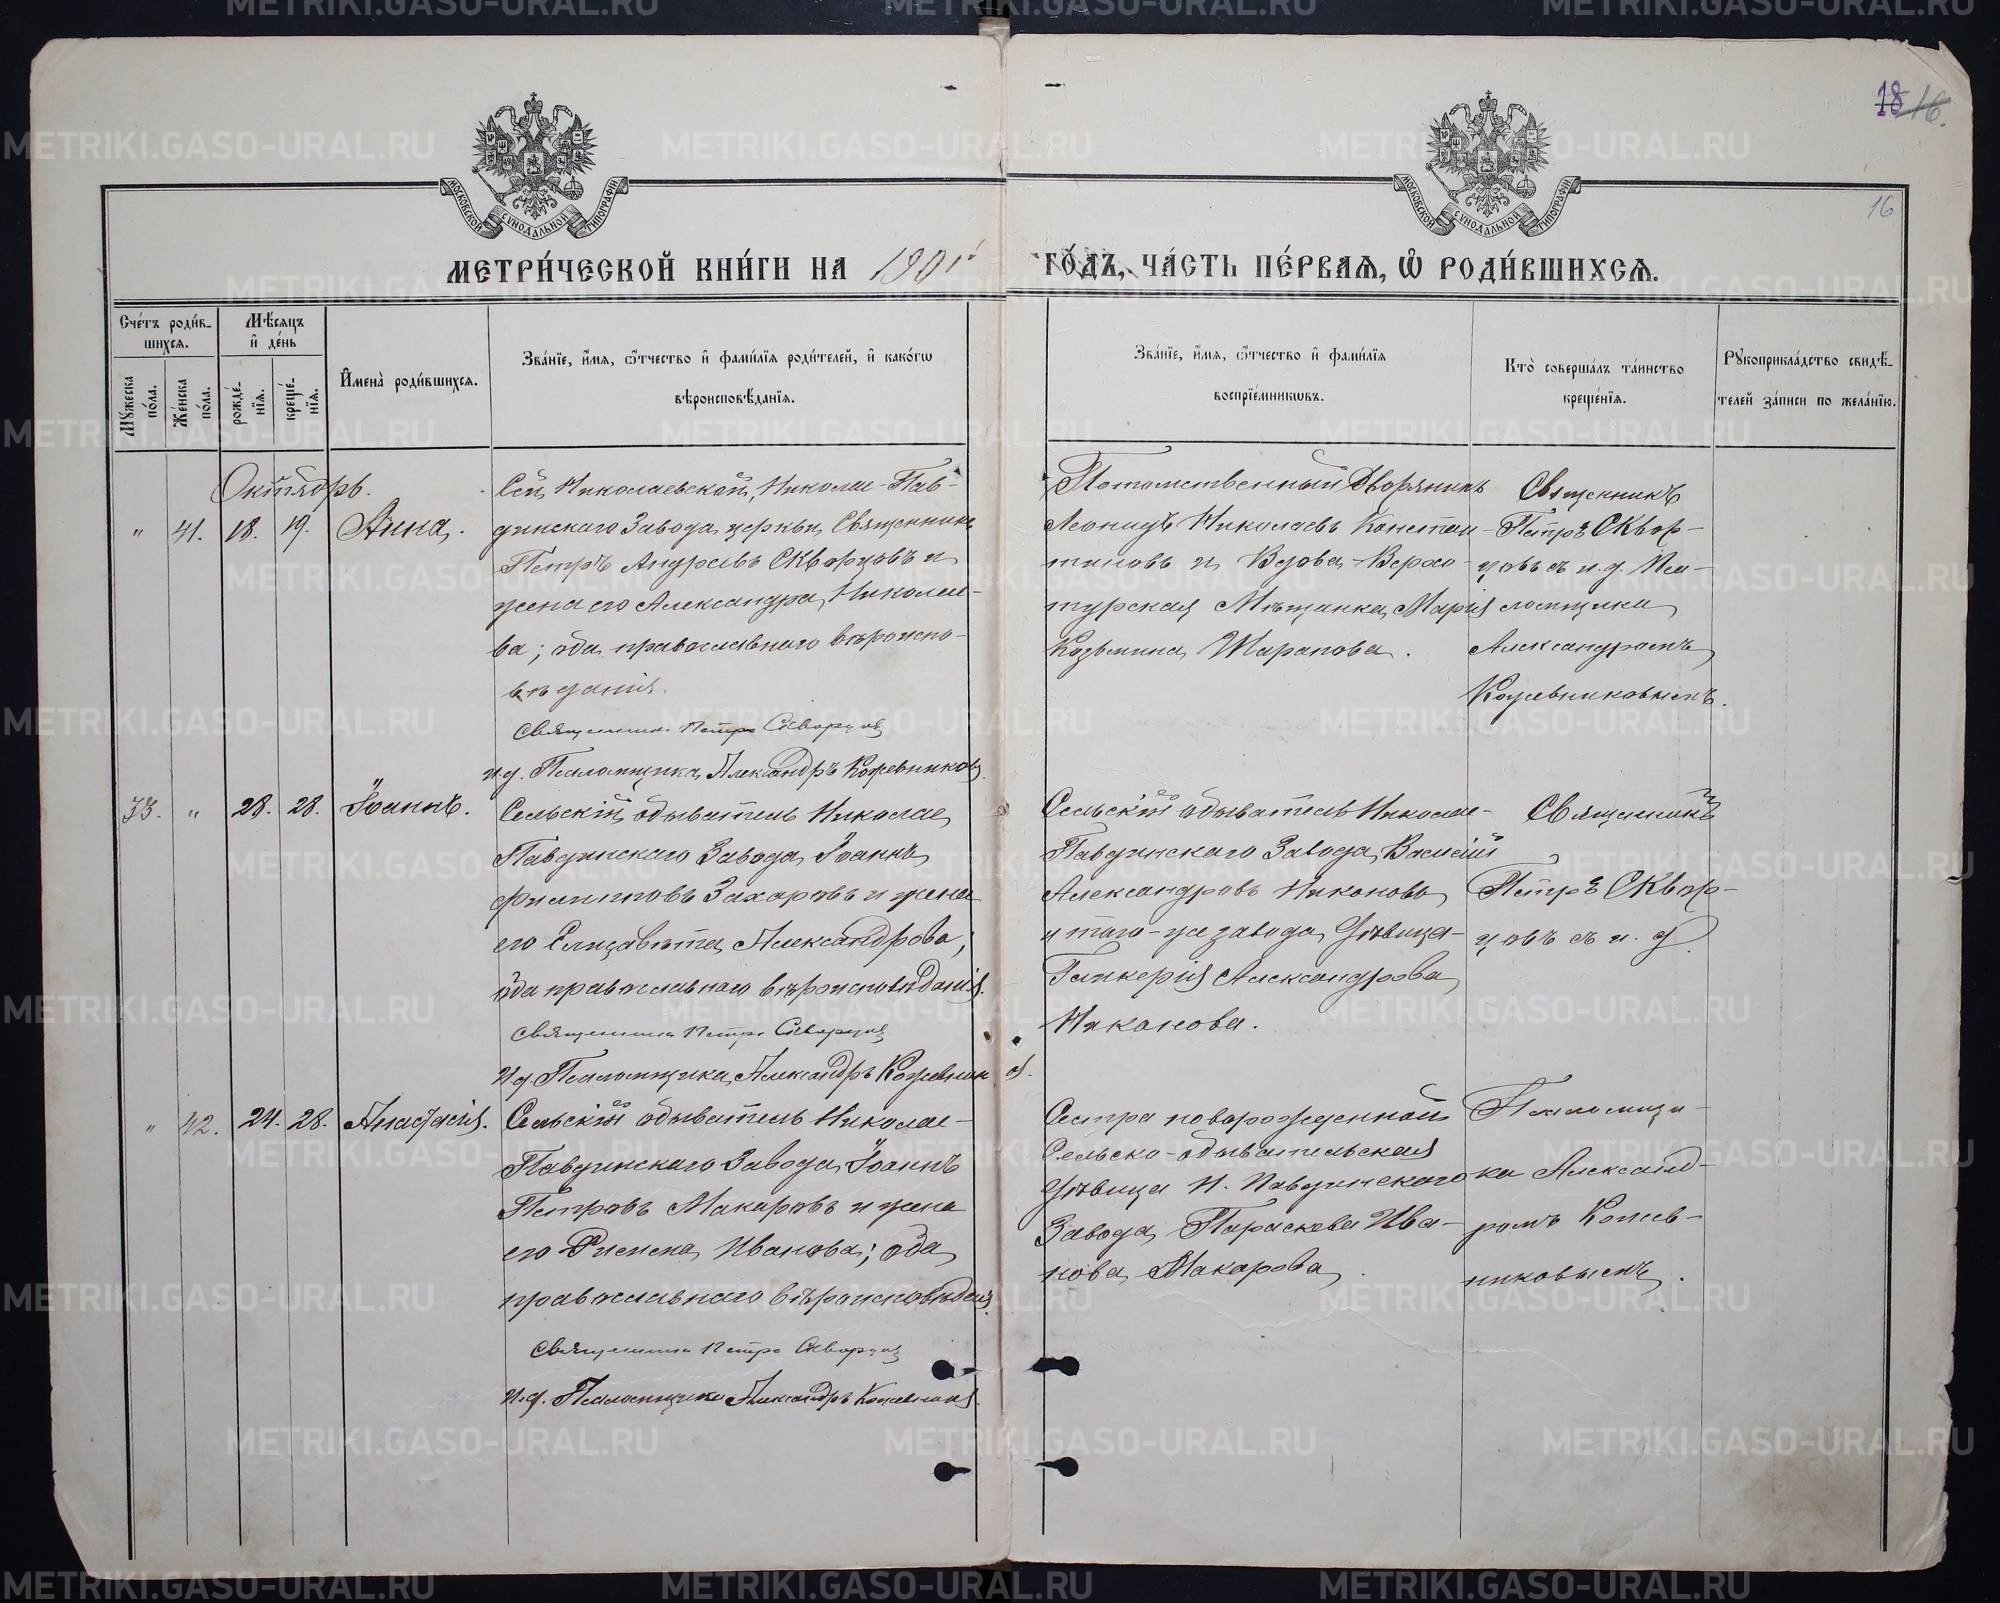 18 16.
16
МОСКОВСКОЙ СУНОДАЛЬНОЙ ТИПОГРАФІИ
МОСКОВСКОЙ СУНОДАЛЬНОЙ ТИПОГРАФІИ
МЕТРИ́ЧЕСКОЙ КНИ́ГИ НА 1901 ГО́ДЪ, ЧА́СТЬ ПЕ́РВАЯ, Ѡ҆ РОДИ́ВШИХСѦ.
Сче́тъ роди́в-
шихсѧ.
Мꙋжеска по́ла.
Же́нска по́ла.
Мѣ́сѧцъ
и҆ де́нь
рожде́-
нїѧ.
креще́-
нїѧ.
И҆мена̀ роди́вшихсѧ.
Зва́нїе, и҆́мѧ, ѻ҆́тчество и҆ фами́лїѧ роди́телей, и҆ како́гѡ
вѣроисповѣ́данїѧ.
Зва́нїе, и҆́мѧ, ѻ҆́тчество и҆ фами́лїѧ
воспрїе́мникѡвъ.
Кто̀ соверша́лъ та́инство
креще́нїѧ.
Рꙋкоприкла́дство свидѣ́-
телей за́писи по жела́нїю.
Октябрь.
" 41. 18. 19. Анна.
Сей Николаевской, Николае-Пав-
динскаго Завода церкви Священникъ
Петръ Андреевъ Скворцовъ и
жена его Александра Николае-
ва; оба православнаго вѣроиспо-
вѣданія.
Священникъ Петръ Скворцовъ
И.д. Псаломщика Александръ Кожевниковъ.
Потомственный Дворянинъ
Леонидъ Николаевъ Констан-
тиновъ и Вдова Верхо-
турская Мѣщанка Марія
Козьмина Шарапова.
Священникъ
Петръ Сквор-
цовъ съ и.д. Пса-
ломщика
Александромъ
Кожевниковымъ.
33. " 28. 28. Іоаннъ.
Сельскій обыватель Николае
Павдинскаго Завода Іоаннъ
Филипповъ Захаровъ и жена
его Елизавета Александрова;
оба православнаго вѣроисповѣданія.
Священникъ Петръ Скворцовъ
И.д. Псаломщика Александръ Кожевниковъ.
Сельскій обыватель Николае-
Павдинскаго Завода Василій
Александровъ Никоновъ
и того-же завода Дѣвица
Гликерія Александрова
Никонова.
Священникъ
Петръ Сквор-
цовъ съ и. д.
" 42. 24. 28. Анастасія.
Сельскій обыватель Николае-
Павдинскаго Завода Іоаннъ
Петровъ Макаровъ и жена
его Ивановa; оба
православнаго вѣроисповѣданія.
Священникъ Петръ Скворцовъ
И.д. Псаломщика Александръ Кожевниковъ.
Сестра новорожденной
Сельско-обывательская
Дѣвица Н. Павдинскаго
Завода Параскева Ива-
нова Макарова.
Псаломщи-
ка Александ-
ромъ Кожев-
никовымъ.
METRIKI.GASO-URAL.RU